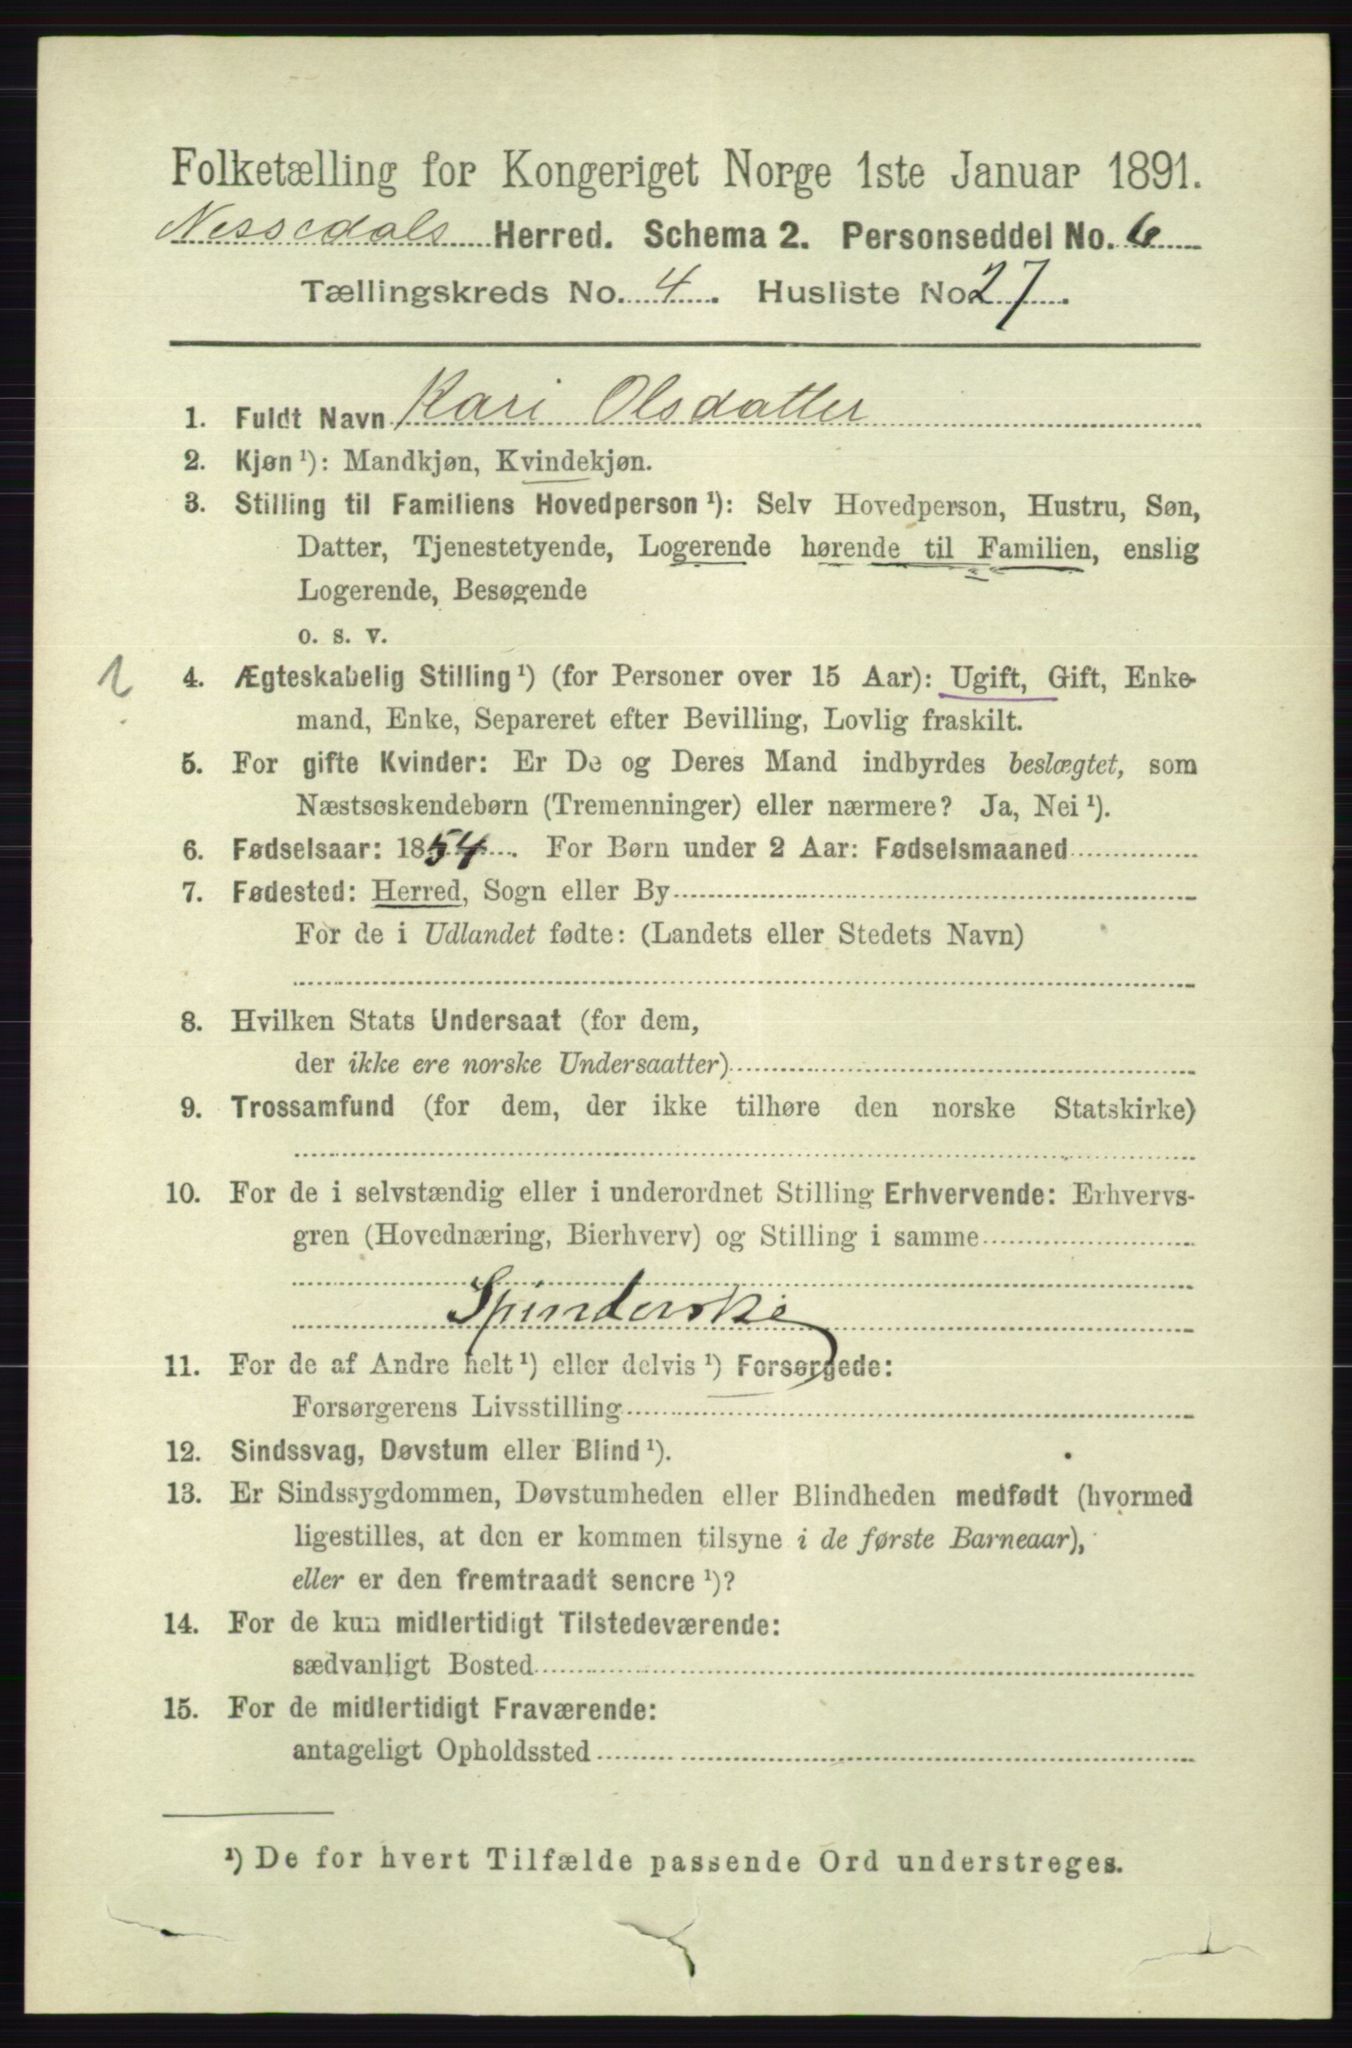 Folketælling for Kongeriget Norge 1ste Januar 1891.
Nissedals Herred. Schema 2. Personseddel No. 6
Tællingskreds No. 4. Husliste No 27.
1. Fuldt Navn Kari Olsdatter
2. Kjøn ¹): Mandkjøn, Kvindekjøn.
3. Stilling til Familiens Hovedperson ¹): Selv Hovedperson, Hustru, Søn,
Datter, Tjenestetyende, Logerende hørende til Familien, enslig
Logerende, Besøgende
o. s. v.
1
4. Ægteskabelig Stilling ¹) (for Personer over 15 Aar): Ugift, Gift, Enke-
mand, Enke, Separeret efter Bevilling, Lovlig fraskilt.
5. For gifte Kvinder: Er De og Deres Mand indbyrdes beslægtet, som
Næstsøskendebørn (Tremenninger) eller nærmere? Ja, Nei ¹).
6. Fødselsaar: 1854. For Børn under 2 Aar: Fødselsmaaned
7. Fødested: Herred, Sogn eller By
For de i Udlandet fødte: (Landets eller Stedets Navn)
8. Hvilken Stats Undersaat (for dem,
der ikke ere norske Undersaatter)
9. Trossamfund (for dem, der ikke tilhøre den norske Statskirke)
10. For de i selvstændig eller i underordnet Stilling Erhvervende: Erhvervs-
gren (Hovednæring, Bierhverv) og Stilling i samme
Spinderske
11. For de af Andre helt ¹) eller delvis ¹) Forsørgede:
Forsørgerens Livsstilling
12. Sindssvag, Døvstum eller Blind ¹).
13. Er Sindssygdommen, Døvstumheden eller Blindheden medfødt (hvormed
ligestilles, at den er kommen tilsyne i de første Barneaar),
eller er den fremtraadt senere ¹)?
14. For de kun midlertidigt Tilstedeværende:
sædvanligt Bosted
15. For de midlertidigt Fraværende:
antageligt Opholdssted
¹) De for hvert Tilfælde passende Ord understreges.